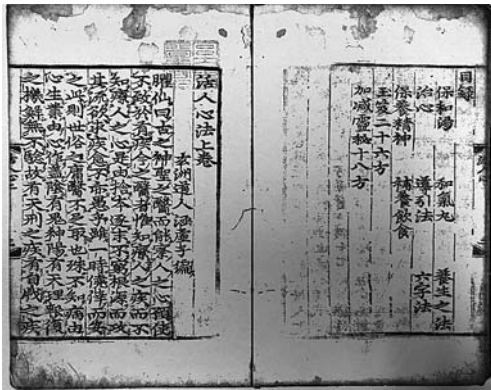 目錄
保和湯 和氣丸 養生之法
治心 導引法 六字法
保養精神 補養飲食
玉笈二十六方
加减靈秘十八方
活人心法上卷
玄洲道人涵虛子編
臞仙曰古之神聖之醫而能療人之心預使
不致於有疾今之醫者惟知療人之疾而不
知療人之心是由捨本逐末不窮根源而攻
其流欲求疾愈不亦愚乎雖一時僥倖而安
之此則世俗之庸醫不足取也殊不知病由
心生業由心作蓋陰有鬼神陽有天理報復
之機鮮無不驗故有天刑之疾有自戕之疾